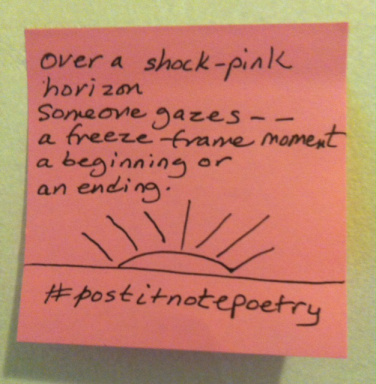 Over a shock-pink
horizon
Someone gazes--
a freeze-frame moment
a beginning or
an ending.
#postitnotepoetry